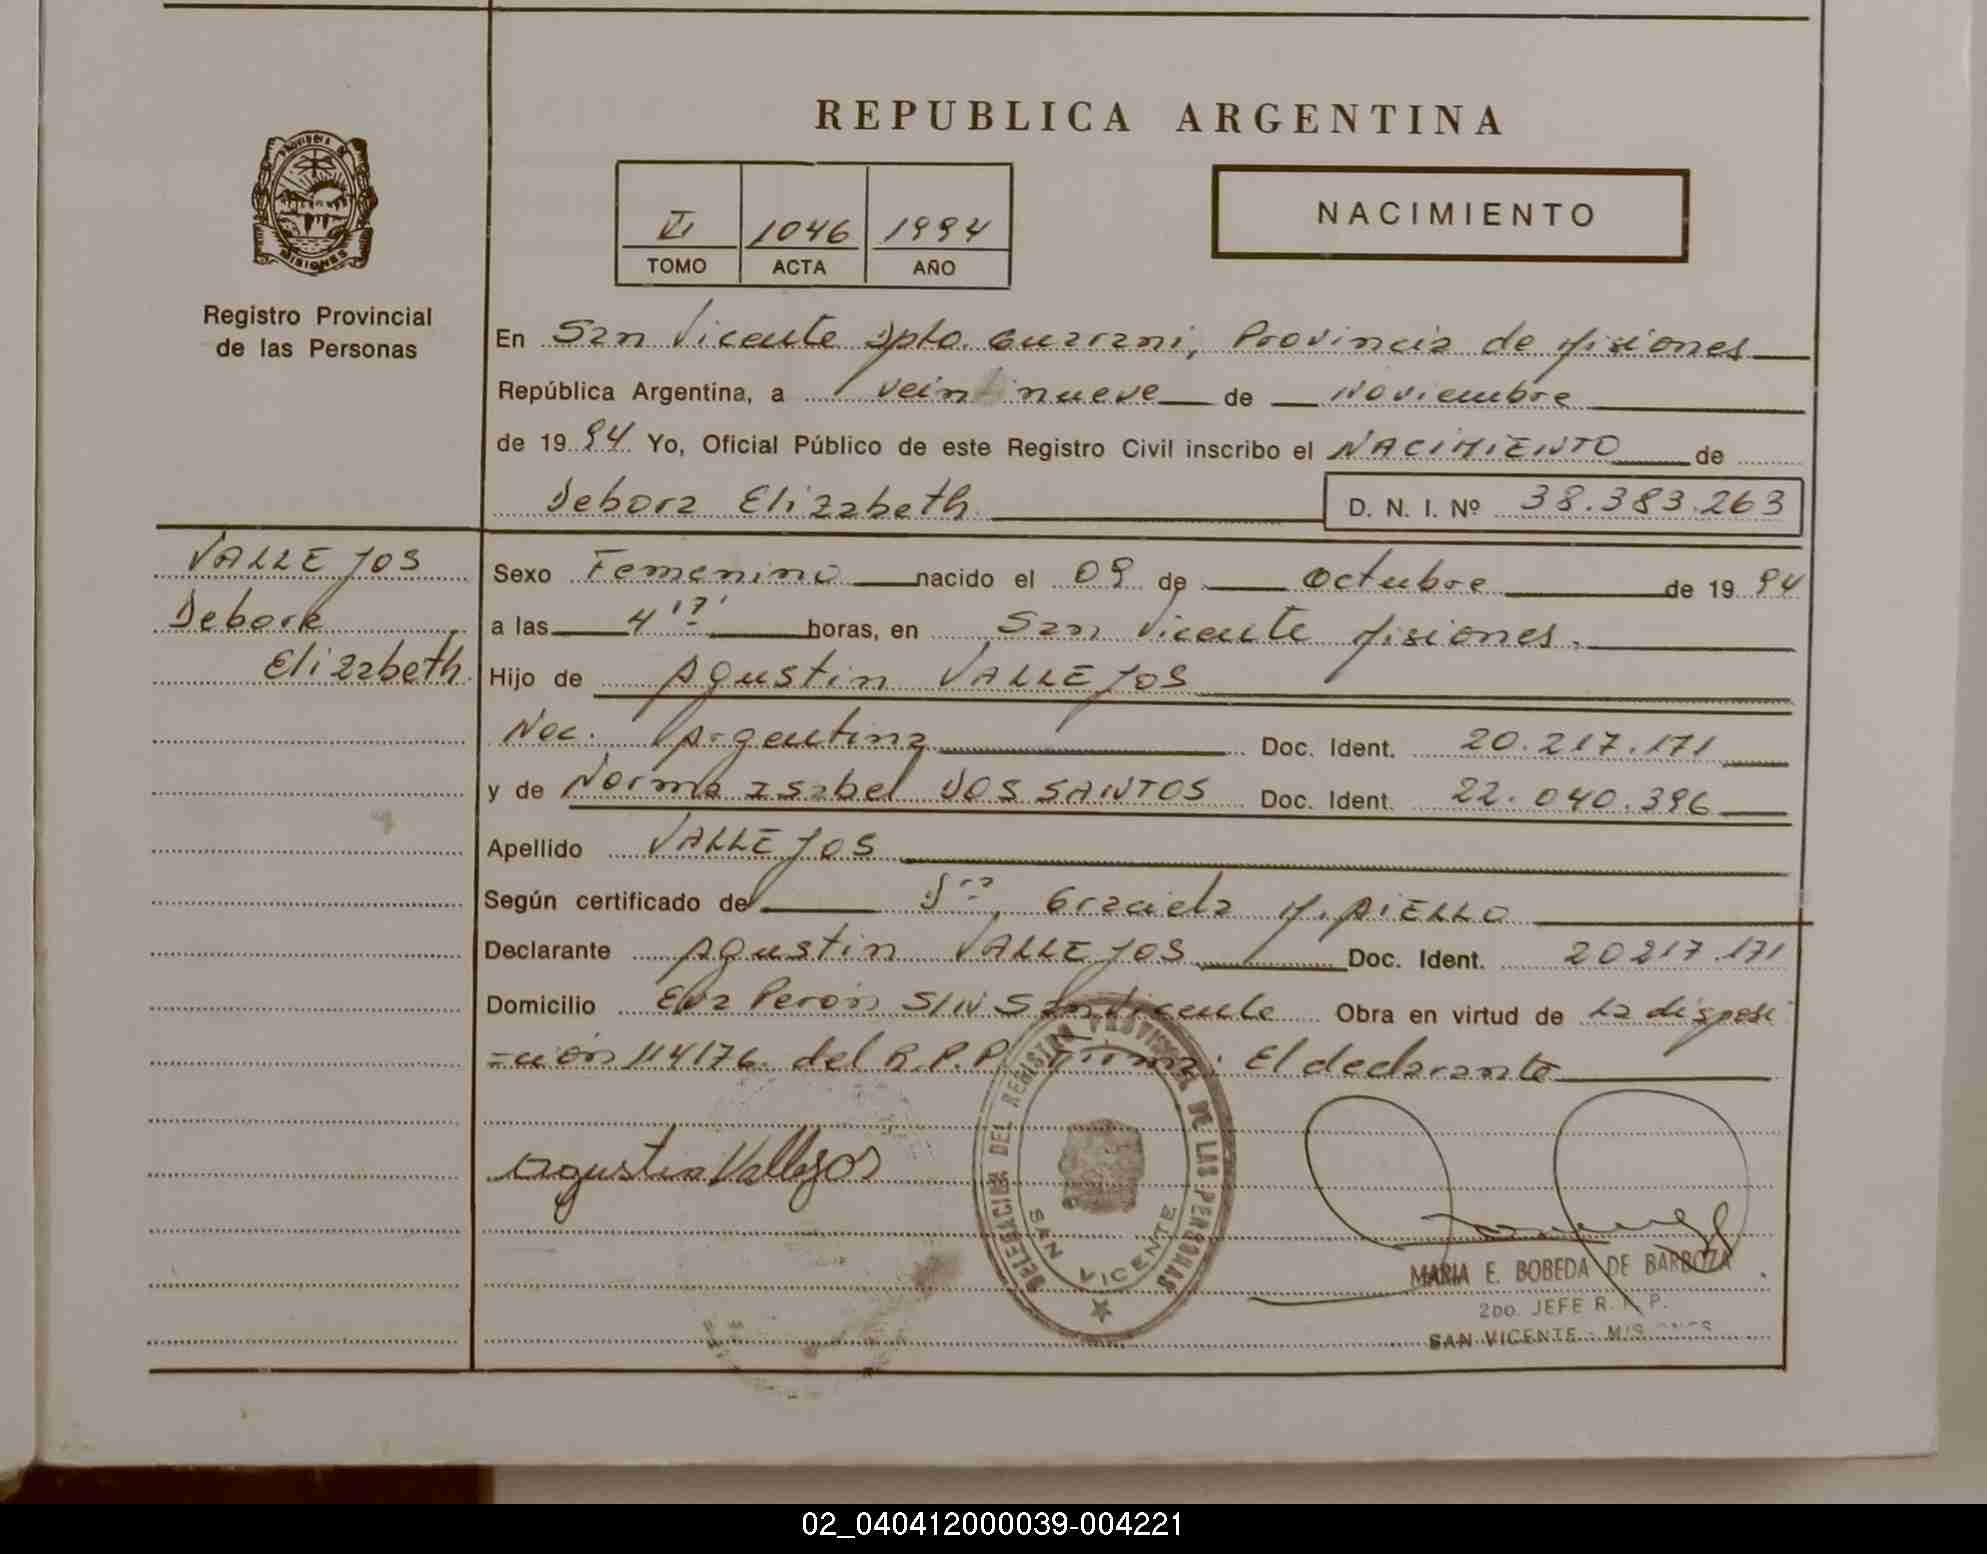 REPUBLICA ARGENTINA
VI 1046 1994
TOMO ACTA AÑO
NACIMIENTO
PROVINCIA DE MISIONES
Registro Provincial
de las Personas
En San Vicente Dpto. Guarani, Provincia de Misiones
República Argentina, a veintinueve de Noviembre
de 1994 Yo, Oficial Público de este Registro Civil inscribo el NACIMIENTO de
Debora Elizabeth D. N. I. Nº 38.383.263
VALLEJOS
Debora
Elizabeth
Sexo Femenino nacido el 09 de Octubre de 1994
a las 4 17' horas, en San Vicente Misiones.
Hijo de Agustin VALLEJOS
Nac. Argentina Doc. Ident. 20.217.171
y de Norma Isabel DOS SANTOS Doc. Ident. 22.040.396
Apellido VALLEJOS
Según certificado de Dra Graciela M. AIELLO
Declarante Agustin VALLEJOS Doc. Ident. 20217.171
Domicilio Eva Perón S/N San Vicente Obra en virtud de la disposi
=ción 114/76 del R.P.P. Firma: El declarante
Agustin Vallejos
DELEGACION DEL REGISTRO PROVINCIAL DE LAS PERSONAS
SAN VICENTE
MARIA E. BOBEDA DE BARBOZA
2DO. JEFE R. P. P.
SAN VICENTE - MISIONES
02_040412000039-004221